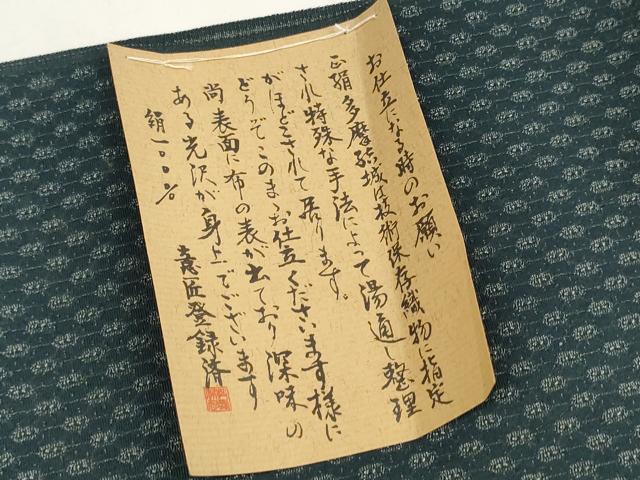 お仕立になる時のお願い
正絹多摩結城は技術保存織物に指定
され特殊な手法によって湯通し整理
がほどこされて居ります。
どうぞこのまゝお仕立くださいます様に
尚表面に布の表が出ており深味の
ある光沢が身上でございます
絹一〇〇%
意匠登録済